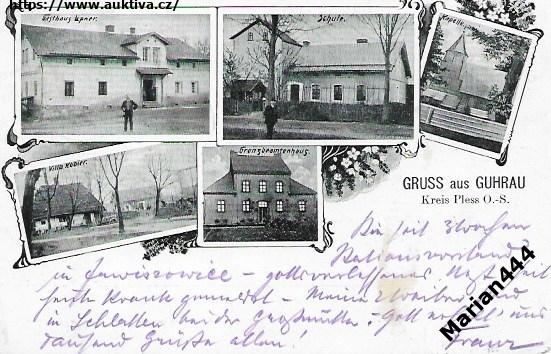 https://www.auktiva.cz/
Gasthaus Upner.
Schule.
Kapelle
Villa Kobier.
Grenzbeamtenhaus.
GRUSS aus GUHRAU
Kreis Pless O.-S.
Bin seit 3 Wochen
Stationsvorstand
in Jawiszowice – gottverlassenes Nest, seit
krank gemeldet – Meine 2 Weiber sind
in Schlesien bei der Großmutter – Gott
tausend Grüße allen! Franz
Marian444